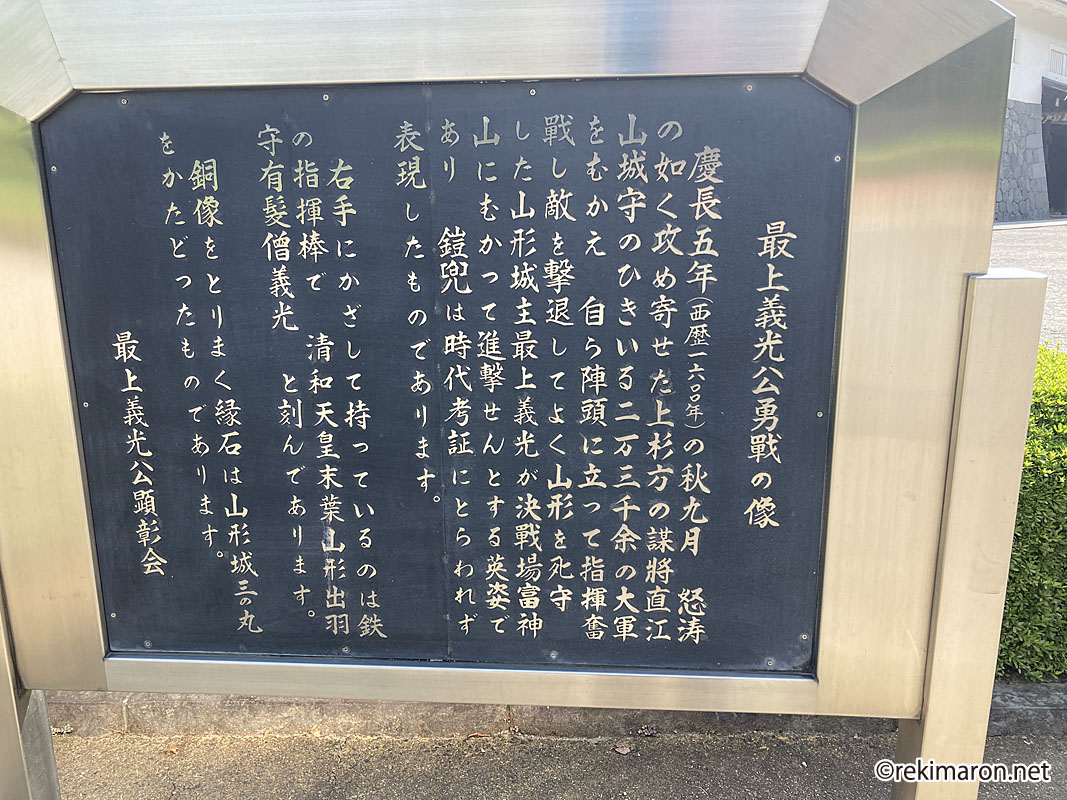 最上義光公勇戰の像
慶長五年(西歴一六〇〇年)の秋九月 怒涛
の如く攻め寄せた上杉方の謀將直江
山城守のひきいる二万三千余の大軍
をむかえ 自ら陣頭に立って指揮奮
戰し敵を撃退してよく山形を死守
した山形城主最上義光が決戰場富神
山にむかって進撃せんとする英姿で
あり 鎧兜は時代考証にとらわれず
表現したものであります。
右手にかざして持っているのは鉄
の指揮棒で 清和天皇末葉山形出羽
守有髪僧義光 と刻んであります。
銅像をとりまく縁石は山形城三の丸
をかたどったものであります。
最上義光公顕彰会
©rekimaron.net